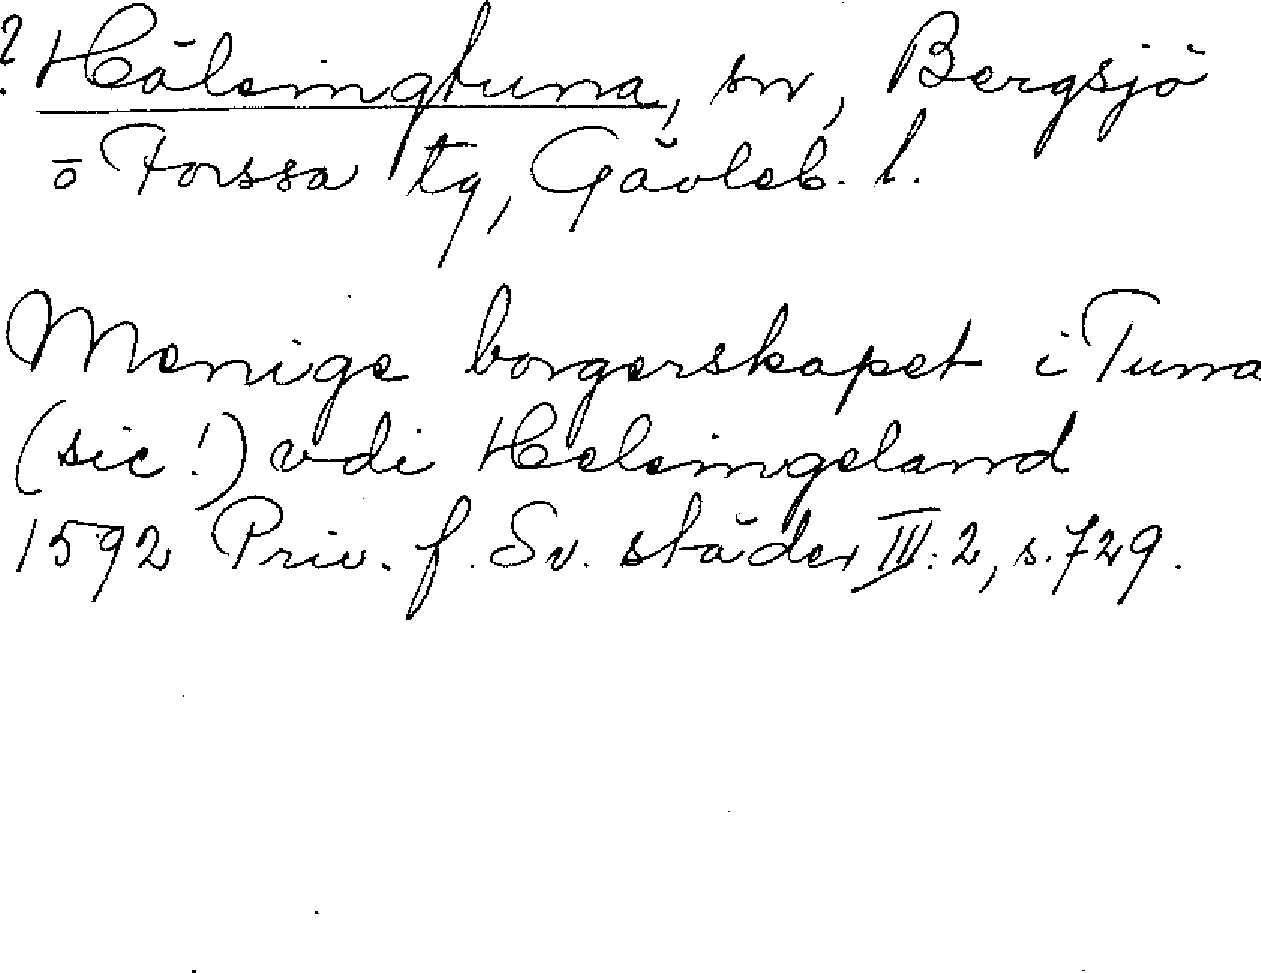 ? Hälsingtuna, sn, Bergsjö
o Forssa tg, Gävleb. l.
Menige borgerskapet i Tuna
(sic!) vdi Helsingeland
1592 Priv. f. Sv. städer III: 2, s. 729.